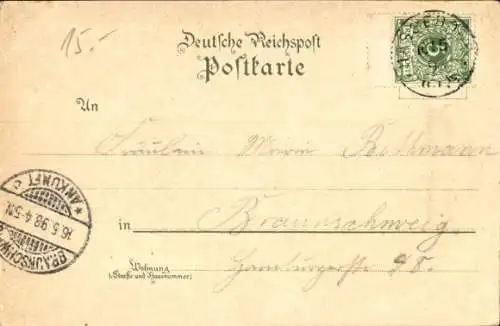 15.-
Deutsche Reichspost
Postkarte
An
Fräulein Marie Bethmann
in Braunschweig.
Wohnung
(Straße und Hausnummer)
Hamburgerstr 98.
* ANKUNFT *
16.5.98.4-5N.
BRAUNSCHWEIG